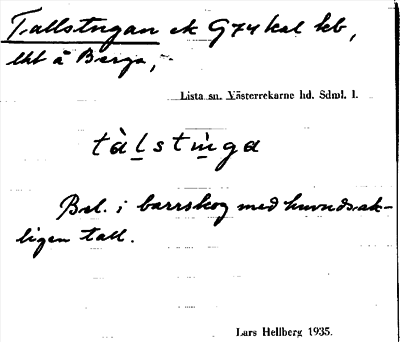 Tallstugan ek G74 kal kb,
lht å Berga,
Lista sn. Västerrekarne hd. Sdml. l.
tàl̲stu̇̀ga
Bel. i barrskog med huvudsak-
ligen tall.
Lars Hellberg 1935.